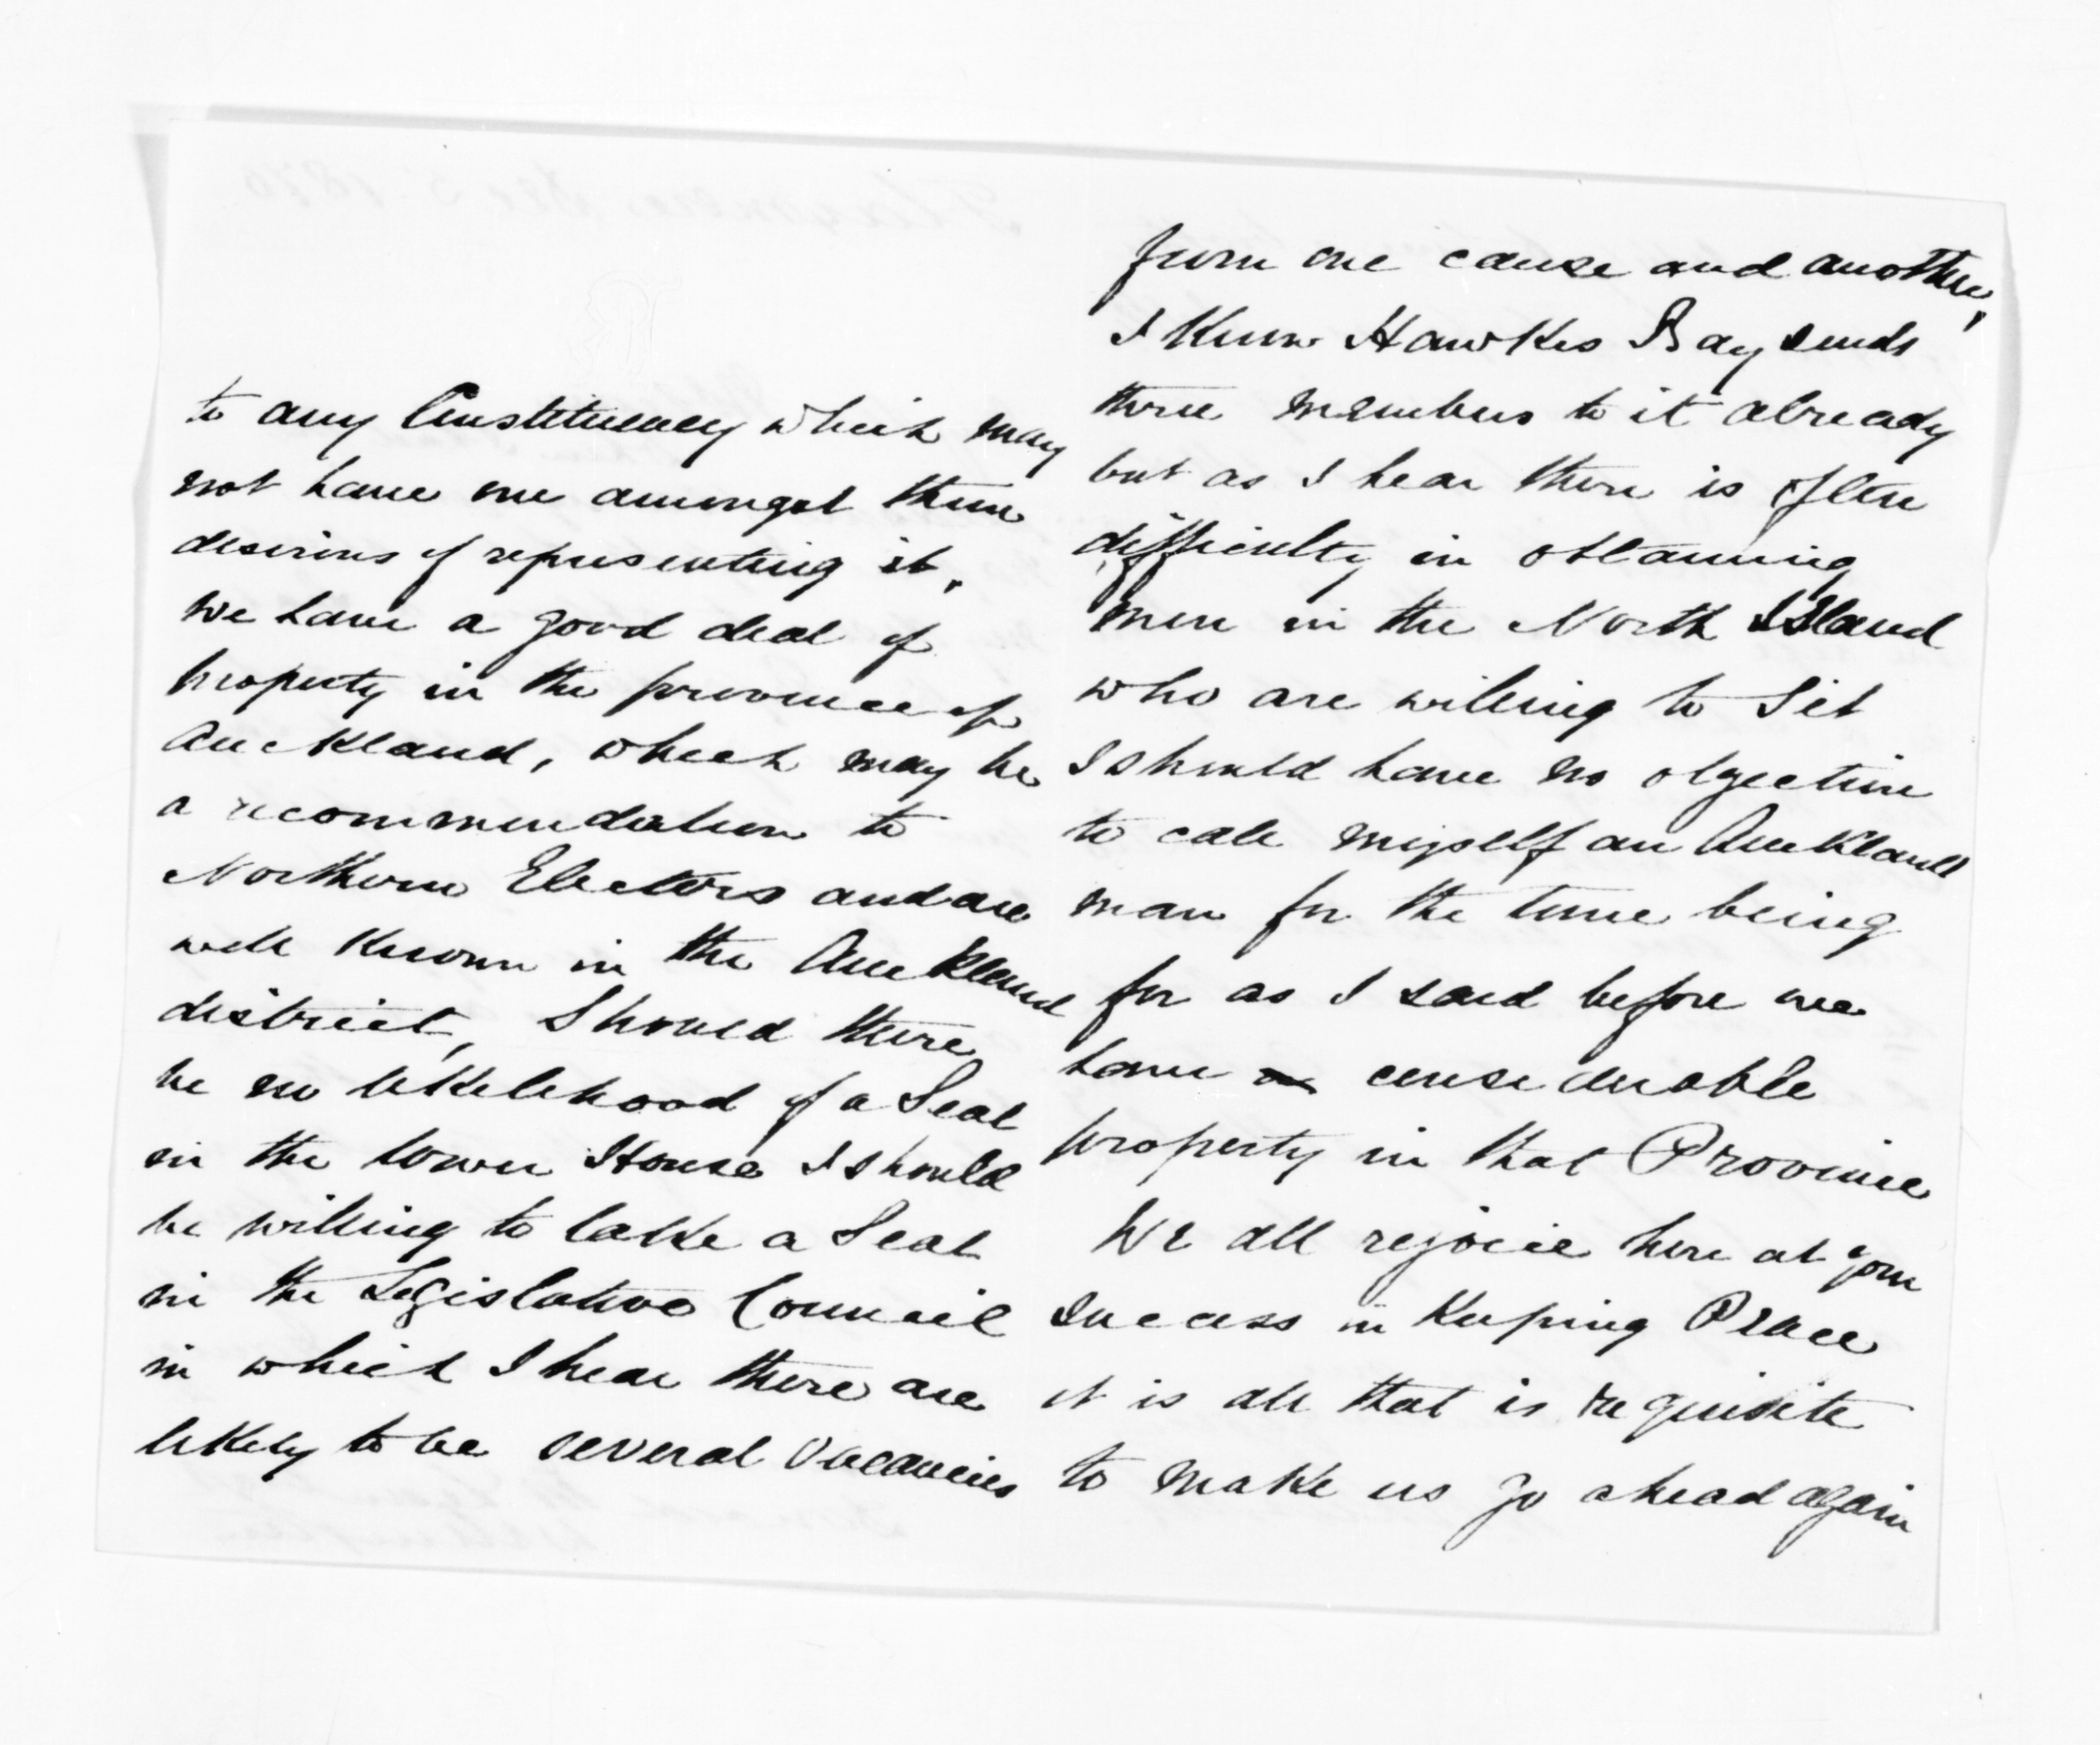 to any Constituency which may
not have one amongst them
desirous of representing it.
We have a good deal of
property in the province of
Auckland, which may be
a recommendation to
Northern Electors and are
well known in the Auckland
district, Should there
be no likelihood of a Seat
in the lower House I should
be willing to take a Seat
in the Legislative Council
in which I hear there are
likely to be several vacancies
from one cause and another,
I know Hawkes Bay sends
three members to it already
but as I hear there is often
difficulty in obtaining
men in the North Island
who are willing to Sit
I should have no objection
to call myself an Auckland
man for the time being
for as I said before we
have considerable
property in that Province
We all rejoice here at your
Success in Keeping Peace
it is all that is requisite
to make us go ahead again